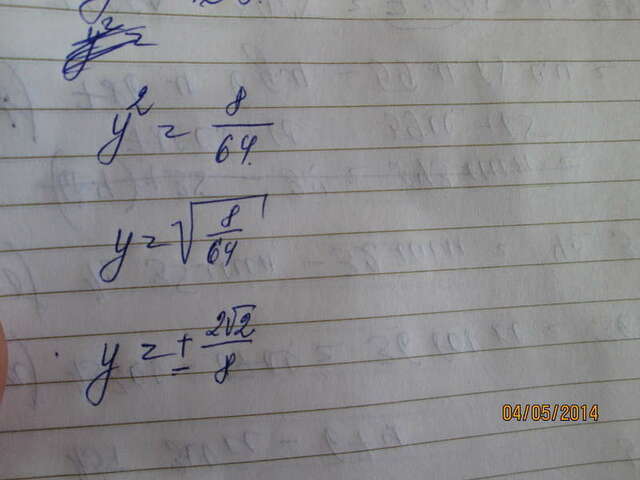 y² = 8/64
y = √(8/64)
y = ± 2√2/8
04/05/2014